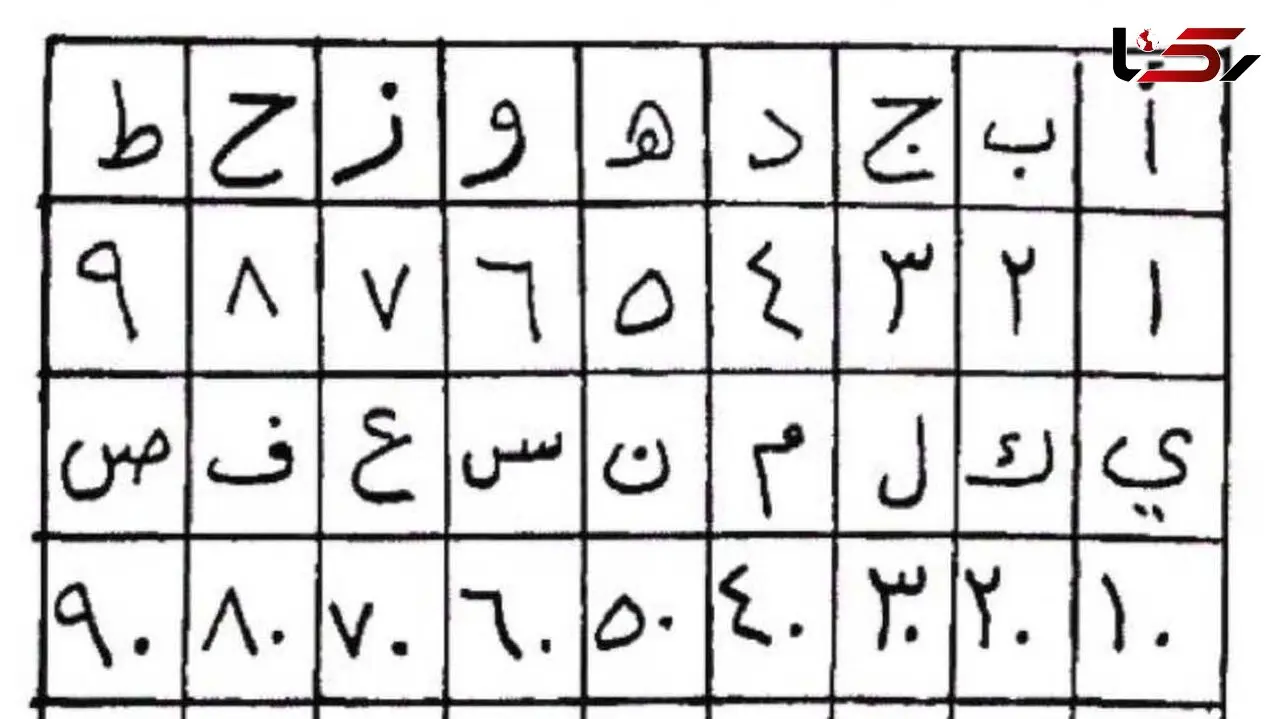 رکنا
أ ب ج د ه و ز ح ط
١ ٢ ٣ ٤ ٥ ٦ ٧ ٨ ٩
ي ك ل م ن س ع ف ص
١٠ ٢٠ ٣٠ ٤٠ ٥٠ ٦٠ ٧٠ ٨٠ ٩٠